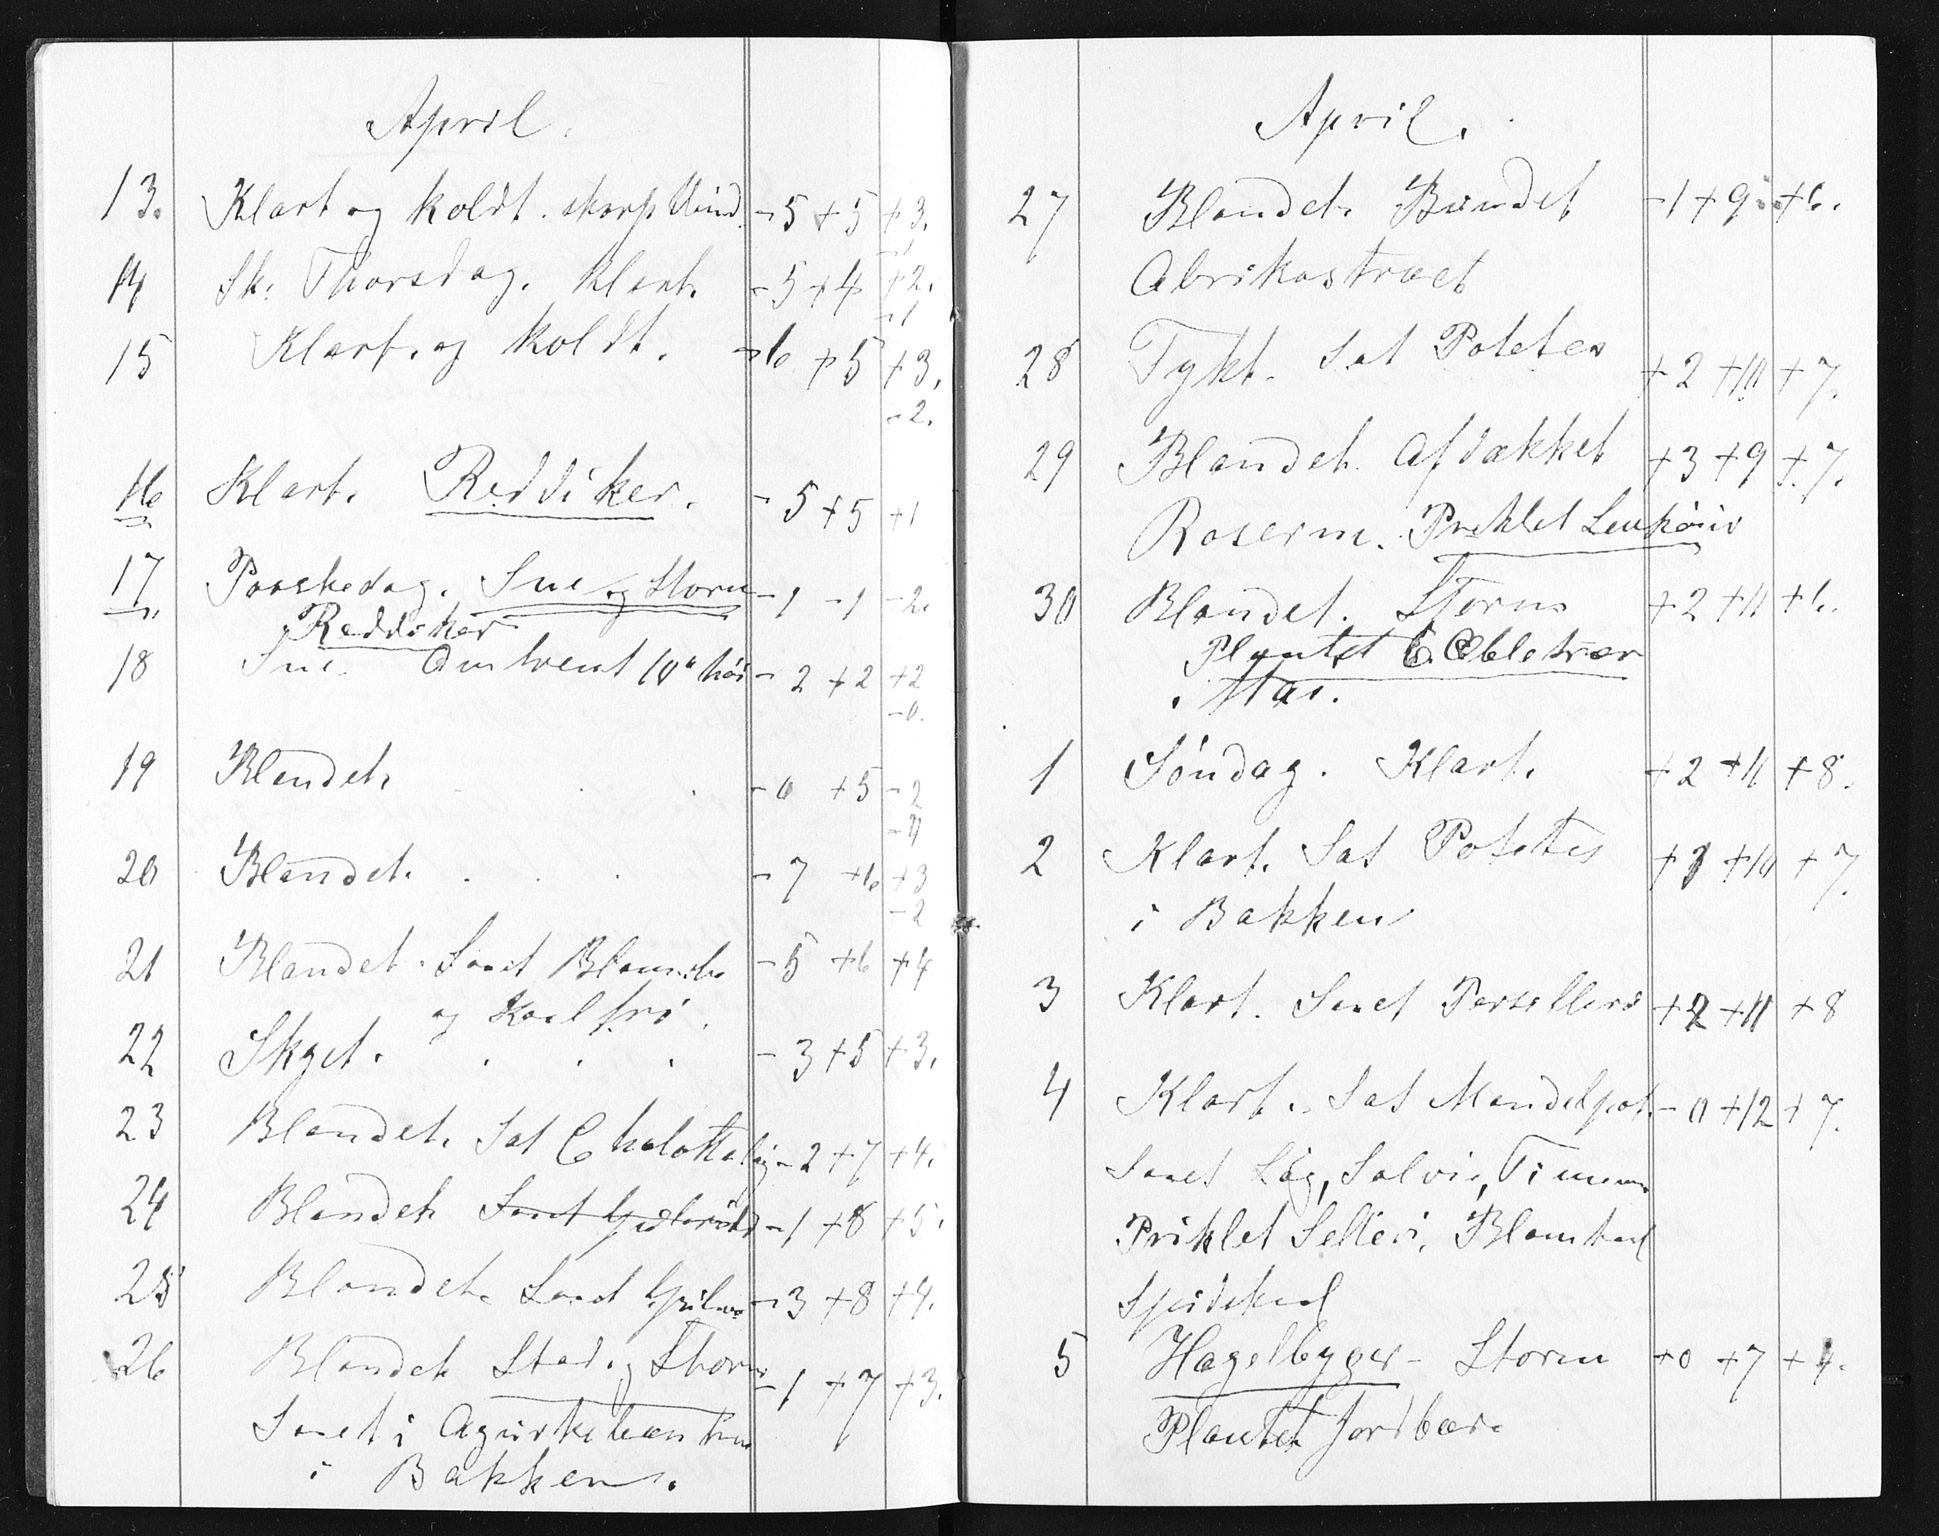 April.
13. Klart og koldt. skarp Vind -5 +5 +3.
14 Sk: Thorsdag. Klart. -5 +4 +2.
-1
15 Klart. og koldt. -6 +5 +3.
-2.
16 Klart. Reddiker. -5 +5 +1
17 Paaskedag. Sne og Storm -1 -1 -2.
Reddiker
18 Sne. Omtrent 10" høi -2 +2 +2
-0.
19 Blandet. -6 +5 -2
20 Blandet. . . . -7 +6 +3
-2
21 Blandet. Saaet Blomster -5 +6 +4
og Kaalfrø.
22 Skyet. . . . -3 +5 +3.
23 Blandet. Sat Chalotteløg -2 +7 +4.
24 Blandet. Saaet -1 +8 +5.
25 Blandet. Saaet -3 +8 +4.
26 Blandet. og Storm -1 +7 +3.
Saaet i Agurkebænken
i Bakken.
April.
27 Blandet. Bundet -1 +9 +6.
Abrikostræet
28 Tykt. Sat Potetes +2 +10 +7.
29 Blandet. Afdækket +3 +9 +7.
Roserne. Priklet Levkøier
30 Blandet. Storm +2 +11 +6.
Plantet 6 Æbletrær
i Has.
1 Søndag. Klart. +2 +11 +8.
2 Klart. Sat Potetes +3 +10 +7.
i Bakken
3 Klart. Saaet Persillerod +2 +11 +8
4 Klart. Sat Mandelpot. -0 +12 +7.
Saaet Løg, Salvie, Timian
Priklet Selleri, Blomkaal
Spidskaal
5 Hagelbyger - Storm +0 +7 +4.
Plantet Jordbær.